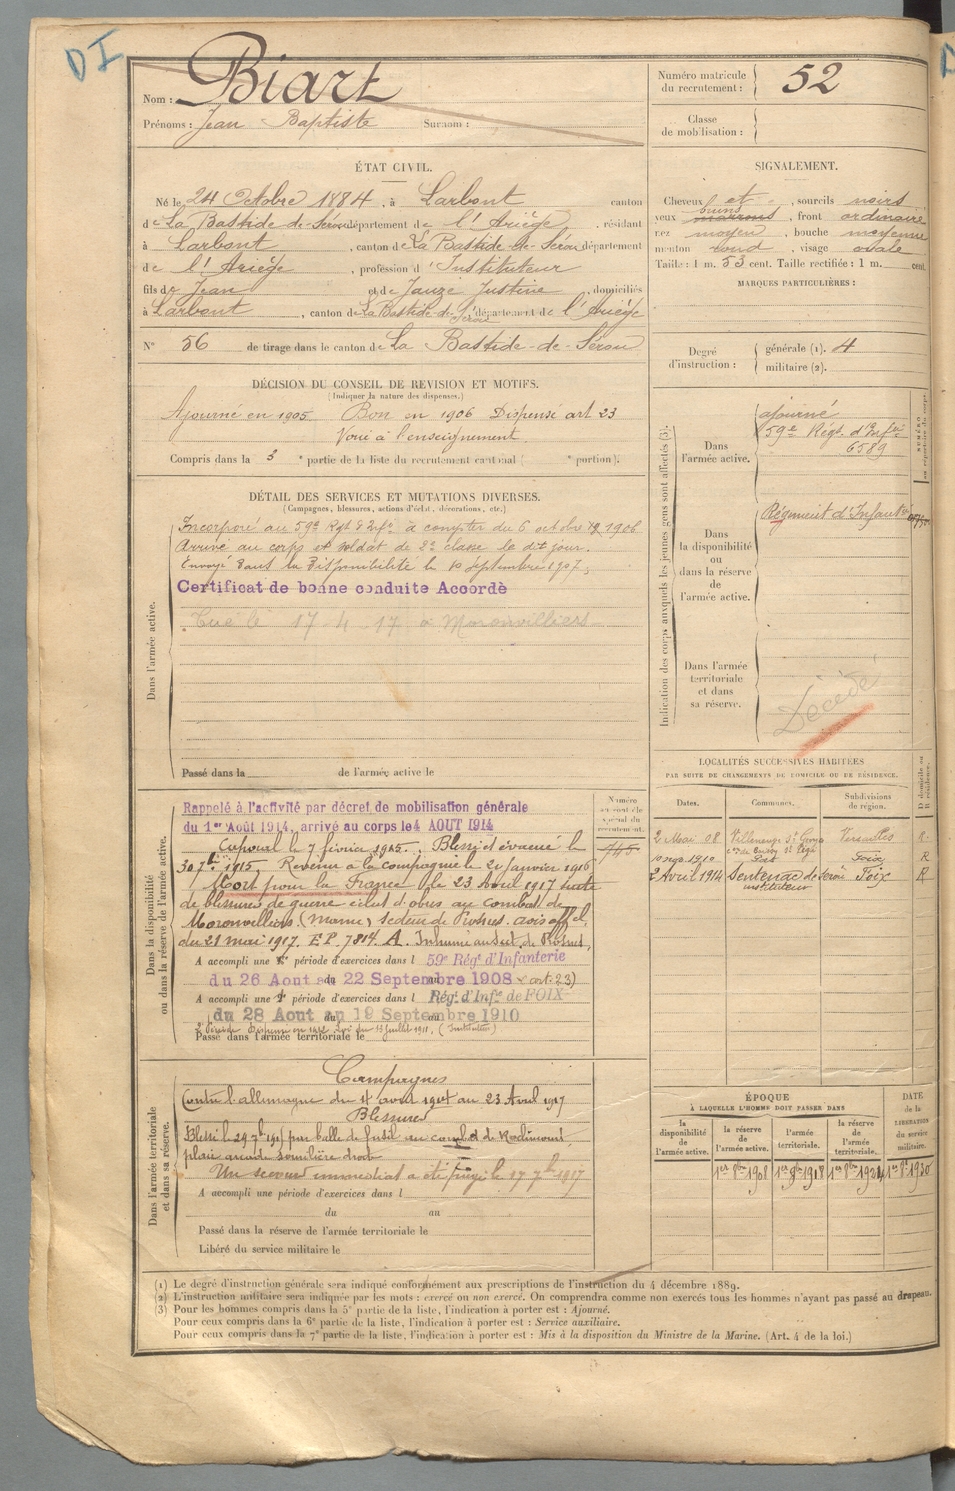 DI
Nom : Biart
Prénoms : Jean Baptiste Surnom :
Numéro matricule du recrutement : 52
Classe de mobilisation :
ÉTAT CIVIL.
Né le 24 Octobre 1884, à Larbont canton
de La Bastide-de-Sérou département de l'Ariège, résidant
à Larbont, canton de La Bastide-de-Sérou département
de l'Ariège, profession d'Instituteur
fils de Jean et de Jauze Justine, domiciliés
à Larbont, canton de La Bastide-de-Sérou département de l'Ariège
N° 56 de tirage dans le canton de La Bastide-de-Sérou
SIGNALEMENT.
Cheveux et sourcils noirs
yeux marrons bruns, front ordinaire
nez moyen, bouche moyenne
menton rond, visage ovale
Taille : 1 m. 53 cent. Taille rectifiée : 1 m. cent.
MARQUES PARTICULIÈRES :
Degré d'instruction : générale (1). 4
militaire (2).
DÉCISION DU CONSEIL DE REVISION ET MOTIFS.
(Indiquer la nature des dispenses.)
Ajourné en 1905. Bon en 1906 Dispensé art 23
Voué à l'enseignement
Compris dans la 3e partie de la liste du recrutement cantonal ( e portion).
DÉTAIL DES SERVICES ET MUTATIONS DIVERSES.
(Campagnes, blessures, actions d'éclat, décorations, etc.)
Dans l'armée active.
Incorporé au 59e Régt d'Infie à compter du 6 octobre 1906
Arrivé au corps et soldat de 2e classe le dit jour.
Envoyé dans la Disponibilité le 10 Septembre 1907,
Certificat de bonne conduite Accordé
Tué le 17-4-17 à Moronvilliers
Passé dans la de l'armée active le
Indication des corps auxquels les jeunes gens sont affectés (3).
Dans l'armée active.
ajourné
59e Régt d'Infie
6589
Dans la disponibilité ou dans la réserve de l'armée active.
Régiment d'Infanterie
Dans l'armée territoriale et dans sa réserve.
Décédé
Dans la disponibilité ou dans la réserve de l'armée active.
Rappelé à l'activité par décret de mobilisation générale
du 1er Août 1914, arrivé au corps le 4 AOUT 1914
Caporal le 7 février 1915. Blessé et évacué le
30 7bre 1915, Revenu à la compagnie le 21 Janvier 1916
Mort pour la France le 23 Avril 1917 suite
de blessures de guerre éclat d'obus au combat de
Moronvilliers (Marne) secteur de Prosnes. avis offel
du 21 mai 1917. E.P. 7814 A. Inhumé au sect. de Prosnes,
A accompli une 1re période d'exercices dans l 59e Rég. d'Infanterie
du 26 Aout au 22 Septembre 1908 (art. 23)
A accompli une période d'exercices dans l Rég. d'Infie de FOIX
du 28 Aout au 19 Septembre 1910
Passé dans l'armée territoriale le
LOCALITÉS SUCCESSIVES HABITÉES
PAR SUITE DE CHANGEMENTS DE DOMICILE OU DE RÉSIDENCE.
Dates. Communes. Subdivisions de région. D domicile ou R résidence.
2 Mai 08 Villeneuve St Georges Versailles R
10 1910 Foix R
2 Avril 1914 Sentenac de Sérou Foix R
instituteur
Dans l'armée territoriale et dans sa réserve.
Campagnes
Contre l'allemagne du 4 aout 1914 au 23 Avril 1917
Blessures
Blessé le 29 7bre 1915 par balle de fusil au combat de Roclincourt,
plaie arcade sourcilière droite
Un secours immédiat a été payé le 17 7bre 1917
A accompli une période d'exercices dans l
du au
Passé dans la réserve de l'armée territoriale le
Libéré du service militaire le
ÉPOQUE
À LAQUELLE L'HOMME DOIT PASSER DANS
la disponibilité de l'armée active.
la réserve de l'armée active.
l'armée territoriale.
la réserve de l'armée territoriale.
DATE de la LIBÉRATION du service militaire.
1er 8bre 1908 1er 8bre 1918 1er 8bre 1924 1er 8bre 1930
(1) Le degré d'instruction générale sera indiqué conformément aux prescriptions de l'instruction du 4 décembre 1889.
(2) L'instruction militaire sera indiquée par les mots : exercé ou non exercé. On comprendra comme non exercés tous les hommes n'ayant pas passé au drapeau.
(3) Pour les hommes compris dans la 5e partie de la liste, l'indication à porter est : Ajourné.
Pour ceux compris dans la 6e partie de la liste, l'indication à porter est : Service auxiliaire.
Pour ceux compris dans la 7e partie de la liste, l'indication à porter est : Mis à la disposition du Ministre de la Marine. (Art. 4 de la loi.)